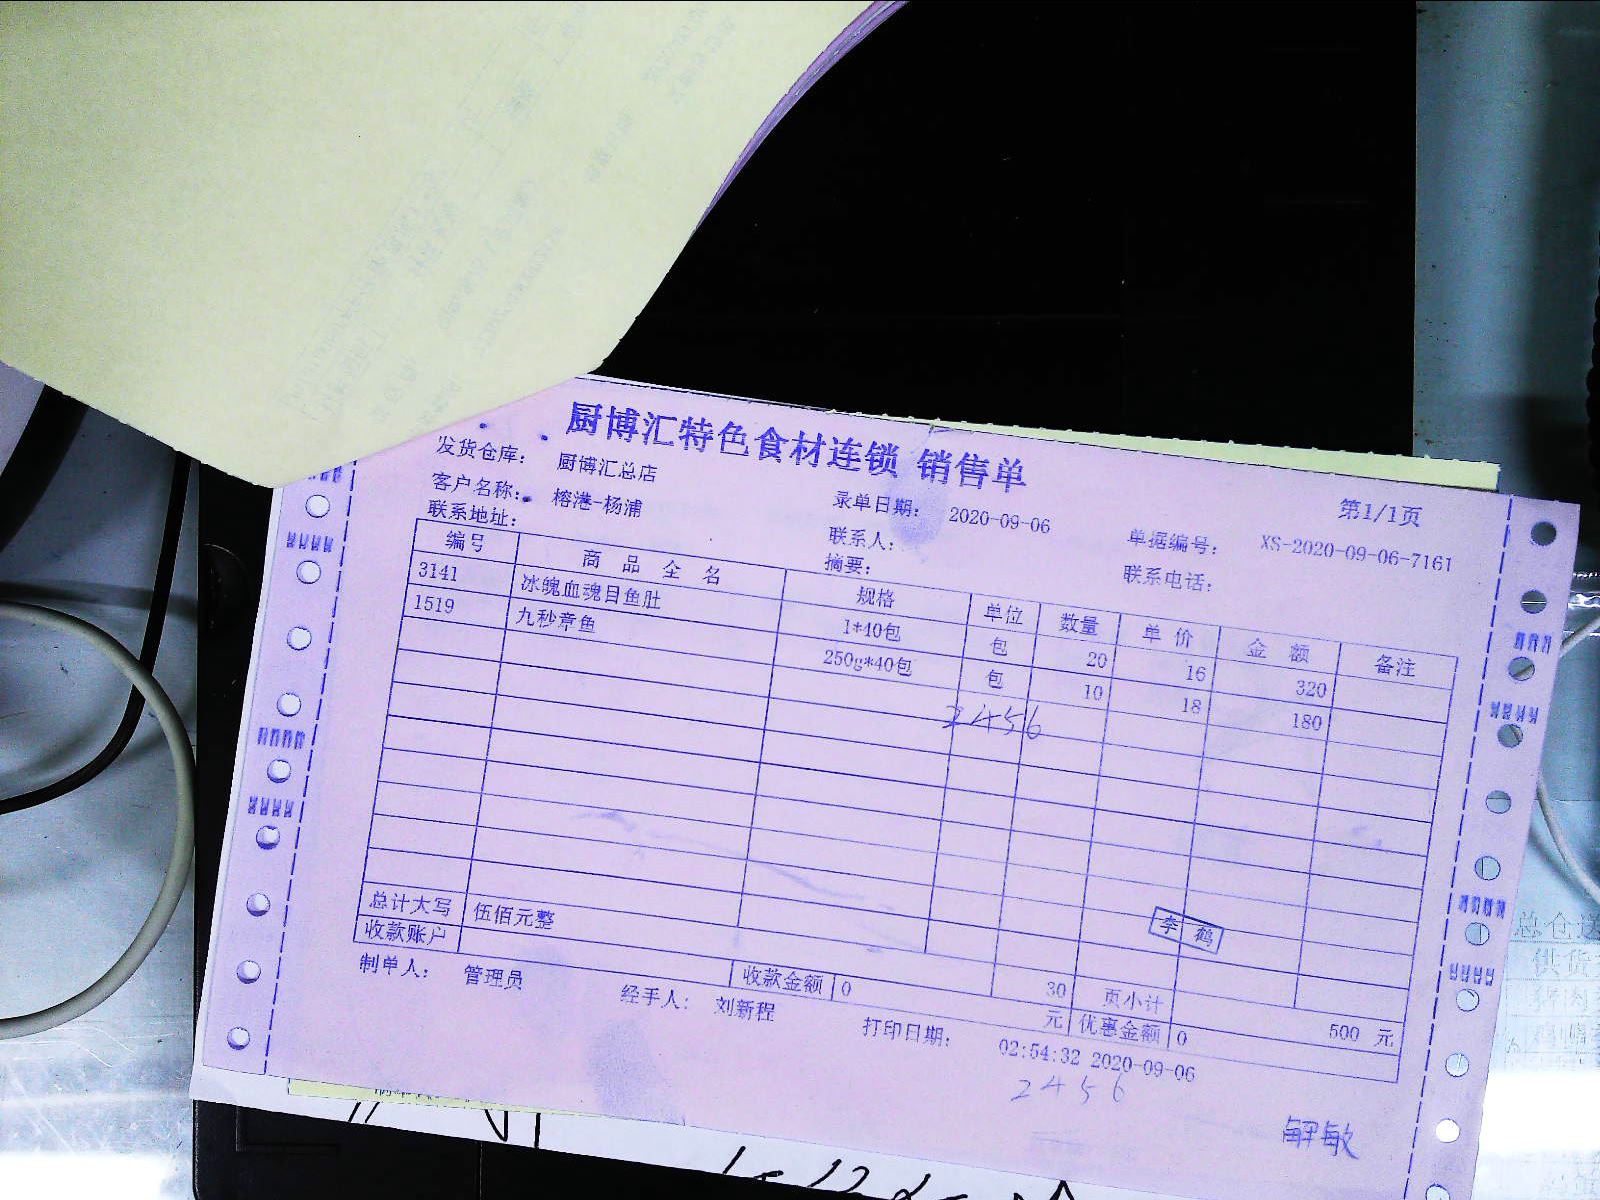 厨博汇特色食材连锁 销售单
第1/1页
发货仓库： 厨博汇总店 录单日期： 2020-09-06 单据编号： XS-2020-09-06-7161
客户名称： 榕港-杨浦 联系人： 联系电话：
联系地址： 摘要：
编号 商品全名 规格 单位 数量 单价 金额 备注
3141 冰魄血魂目鱼肚 1*40包 包 20 16 320
1519 九秒章鱼 250g*40包 包 10 18 180
2456
李鹤
总计大写 伍佰元整 30 页小计 500 元
收款账户 收款金额 0 元 优惠金额 0
制单人： 管理员 经手人： 刘新程 打印日期： 02:54:32 2020-09-06
2456
解敏
总仓送
供货